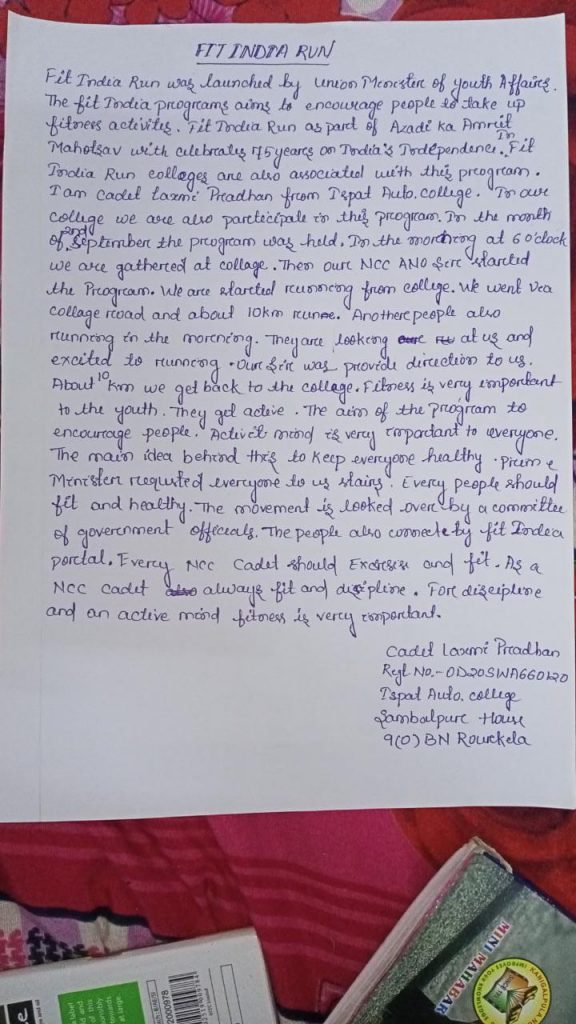 FIT INDIA RUN
Fit India Run was launched by Union Minister of Youth Affairs.
The fit India programs aims to encourage people to take up
fitness activites. Fit India Run as part of Azadi ka Amrit
Mahotsav with celebrates 75 years on India's Independence. In Fit
India Run colleges are also associated with this program.
I am Cadet Laxmi Pradhan from Ispat Auto. college. In our
college we are also participate in this program. In the month
of 2nd September the program was held. In the morning at 6 o'clock
we are gathered at collage. Then our NCC ANO Sir started
the Program. We are started running from college. We went via
collage road and about 10km run. Another people also
running in the morning. They are looking at us and
excited to running. Our Sir was provide direction to us.
About 10 km we get back to the college. Fitness is very important
to the youth. They get active. The aim of the program to
encourage people. Active mind is very important to everyone.
The main idea behind this to keep everyone healthy. Prime
Minister requsted everyone to us stairs. Every people should
fit and healthy. The movement is looked over by a committee
of government officials. The people also connecte by fit India
portal. Every NCC Cadet should Exercise and fit. As a
NCC cadet always fit and discipline. For discipline
and an active mind fitness is very important.
Cadet Laxmi Pradhan
Regt No.- OD20SWA660120
Ispat Auto. college
Sambalpur House
9(O) BN Rourkela
MINI MAHABAR
2000978